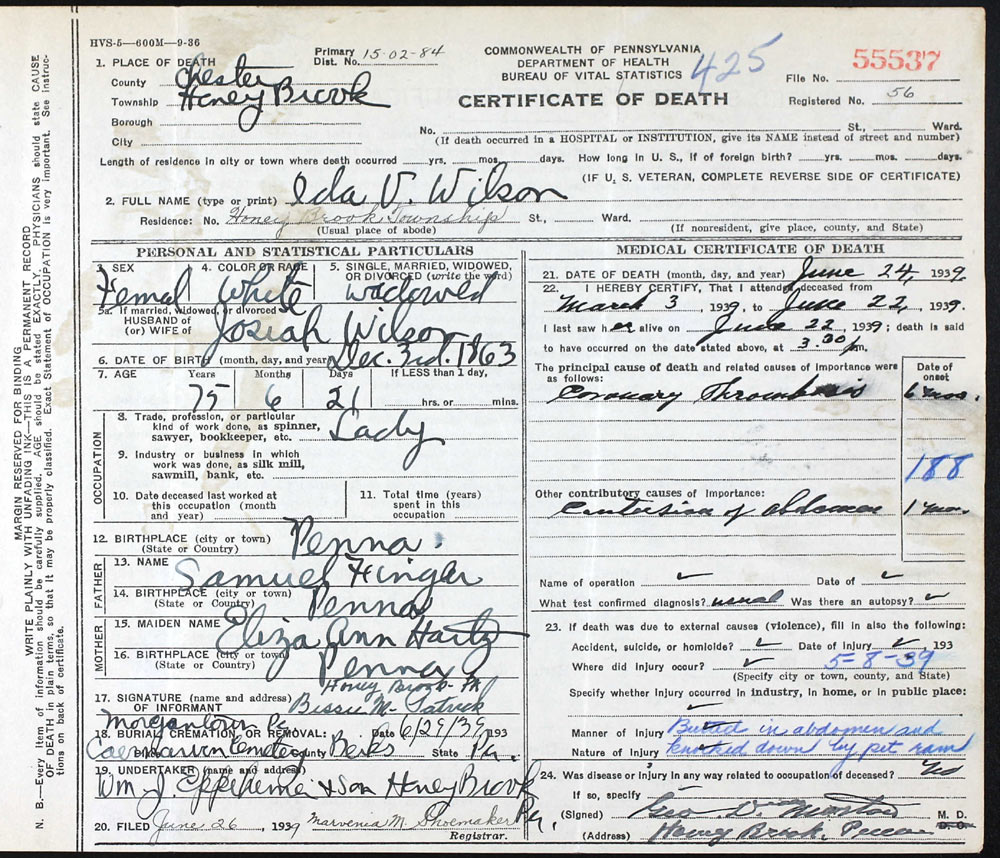 HVS-5—600M—9-36
Primary Dist. No. 15-02-84
COMMONWEALTH OF PENNSYLVANIA
DEPARTMENT OF HEALTH
BUREAU OF VITAL STATISTICS
425
File No. 55537
CERTIFICATE OF DEATH
Registered No. 56
1. PLACE OF DEATH
County Chester
Township Honey Brook
Borough
City
No. St., Ward.
(If death occurred in a HOSPITAL or INSTITUTION, give its NAME instead of street and number)
Length of residence in city or town where death occurred yrs. mos. days. How long in U. S., if of foreign birth? yrs. mos. days.
(IF U. S. VETERAN, COMPLETE REVERSE SIDE OF CERTIFICATE)
2. FULL NAME (type or print) Ida V. Wilson
Residence: No. Honey Brook Township St., Ward.
(Usual place of abode) (If nonresident, give place, county, and State)
PERSONAL AND STATISTICAL PARTICULARS
3. SEX 4. COLOR OR RACE 5. SINGLE, MARRIED, WIDOWED, OR DIVORCED (write the word)
Femal White widowed
5a. If married, widowed, or divorced
HUSBAND of
(or) WIFE of Josiah Wilson
6. DATE OF BIRTH (month, day, and year) Dec. 3rd. 1863
7. AGE Years Months Days If LESS than 1 day,
75 6 21 hrs. or mins.
OCCUPATION
8. Trade, profession, or particular kind of work done, as spinner, sawyer, bookkeeper, etc. Lady
9. Industry or business in which work was done, as silk mill, sawmill, bank, etc.
10. Date deceased last worked at this occupation (month and year)
11. Total time (years) spent in this occupation
12. BIRTHPLACE (city or town) Penna.
(State or Country)
FATHER
13. NAME Samuel Hinger
14. BIRTHPLACE (city or town) Penna
(State or Country)
MOTHER
15. MAIDEN NAME Eliza Ann Hartz
16. BIRTHPLACE (city or town) Penna
(State or Country)
Honey Brook Pa
17. SIGNATURE (name and address) OF INFORMANT Bessie M. Patrick
Morgantown Pa
18. BURIAL, CREMATION, OR REMOVAL: Date 6/29/39 193
Caernarvon Cemetery County Berks State Pa.
19. UNDERTAKER (name and address)
Wm. J Eppeheimer & Son Honey Brook Pa.
20. FILED June 26, 1939 Marvenia M. Shoemaker
Registrar.
MEDICAL CERTIFICATE OF DEATH
21. DATE OF DEATH (month, day, and year) June 24, 1939.
22. I HEREBY CERTIFY, That I attended deceased from
March 3 1939, to June 22, 1939.
I last saw her alive on June 22, 1939; death is said
to have occurred on the date stated above, at 3.00 pm.
The principal cause of death and related causes of importance were as follows:
Date of onset
Coronary Thrombosis 6 mos.
188
Other contributory causes of importance:
Contusion of abdomen 1 mo.
Name of operation ✓ Date of ✓
What test confirmed diagnosis? usual Was there an autopsy? ✓
23. If death was due to external causes (violence), fill in also the following:
Accident, suicide, or homicide? ✓ Date of injury ✓ 193
Where did injury occur? ✓ 5-8-39
(Specify city or town, county, and State)
Specify whether injury occurred in industry, in home, or in public place:
✓
Manner of Injury Butted in abdomen and
Nature of Injury knocked down by pet ram
24. Was disease or injury in any way related to occupation of deceased? No
If so, specify
(Signed) Geo. D. M. D.
D. O.
(Address) Honey Brook, Penna
MARGIN RESERVED FOR BINDING
WRITE PLAINLY WITH UNFADING INK—THIS IS A PERMANENT RECORD
N. B.—Every item of information should be carefully supplied. AGE should be stated EXACTLY. PHYSICIANS should state CAUSE
OF DEATH in plain terms, so that it may be properly classified. Exact Statement of OCCUPATION is very important. See instruc-
tions on back of certificate.